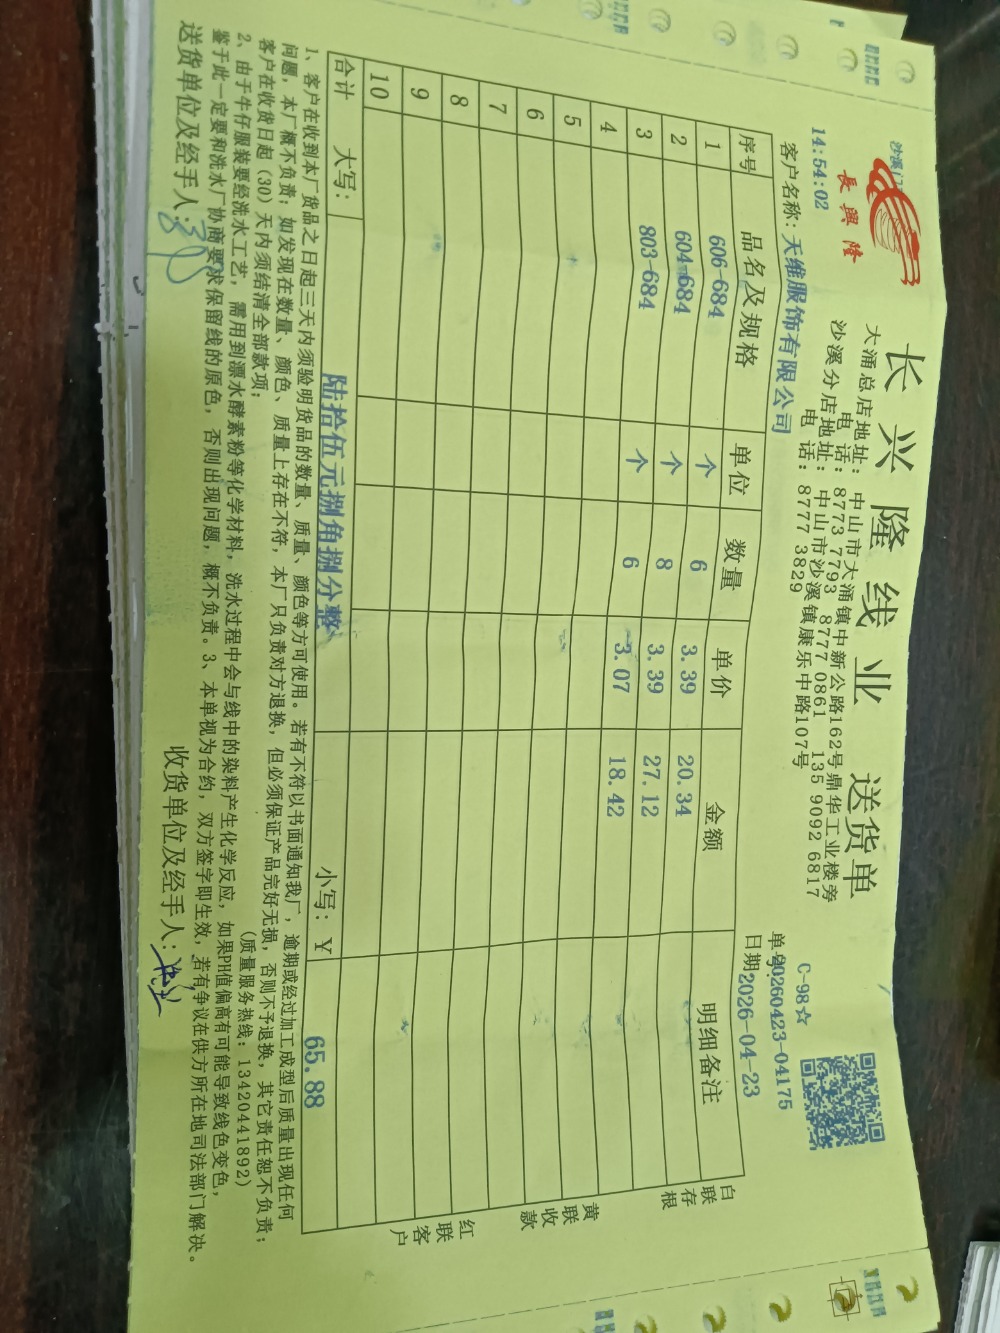 長興隆
长兴隆线业 送货单
大涌总店地址：中山市大涌镇中新公路162号鼎华工业楼旁
电 话：8773 7793 8777 0861 135 9092 6817
沙溪分店地址：中山市沙溪镇康乐中路107号
电 话：8777 3829
14:54:02
C-98☆
单号:20260423-04175
客户名称: 天维服饰有限公司
日期:2026-04-23
序号 品名及规格 单位 数量 单价 金额 明细备注
1 606-684 个 6 3.39 20.34
2 604-684 个 8 3.39 27.12
3 803-684 个 6 3.07 18.42
4
5
6
7
8
9
10
合计 大写: 陆拾伍元捌角捌分整 小写: ¥ 65.88
白联存根
黄联收款
红联客户
1、客户在收到本厂货品之日起三天内须验明货品的数量、质量、颜色等方可使用。若有不符以书面通知我厂，逾期或经过加工成型后质量出现任何
问题，本厂概不负责；如发现在数量、颜色、质量上存在不符，本厂只负责对方退换，但必须保证产品完好无损，否则不予退换，其它责任恕不负责；
客户在收货日起（30）天内须结清全部款项； （质量服务热线：13420441892）
2、由于牛仔服装要经洗水工艺，需用到漂水酵素粉等化学材料，洗水过程中会与线中的染料产生化学反应，如果PH值偏高有可能导致线色变色，
鉴于此一定要和洗水厂协商要求保留线的原色，否则出现问题，概不负责。3、本单视为合约，双方签字即生效，若有争议在供方所在地司法部门解决。
送货单位及经手人: 收货单位及经手人: